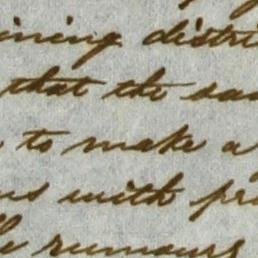 ining distri
that the sa
to make a
us with pr
rumours